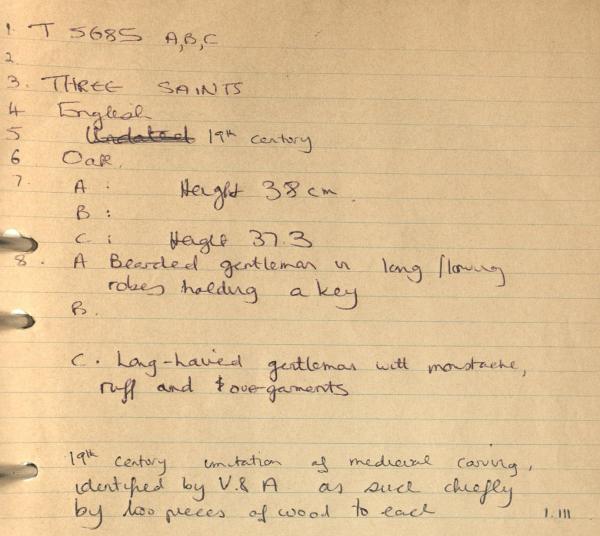 1. T 5685 A,B,C
2
3. THREE SAINTS
4 English
5 Undated 19th century
6 Oak.
7. A : Height 38 cm.
B :
C : Height 37.3
8. A Bearded gentleman in long flowing
robes holding a key
B.
C. Long-haired gentleman with moustache,
ruff and overgarments
19th century imitation of medieval carving,
identified by V.& A as such chiefly
by two pieces of wood to each
1.111